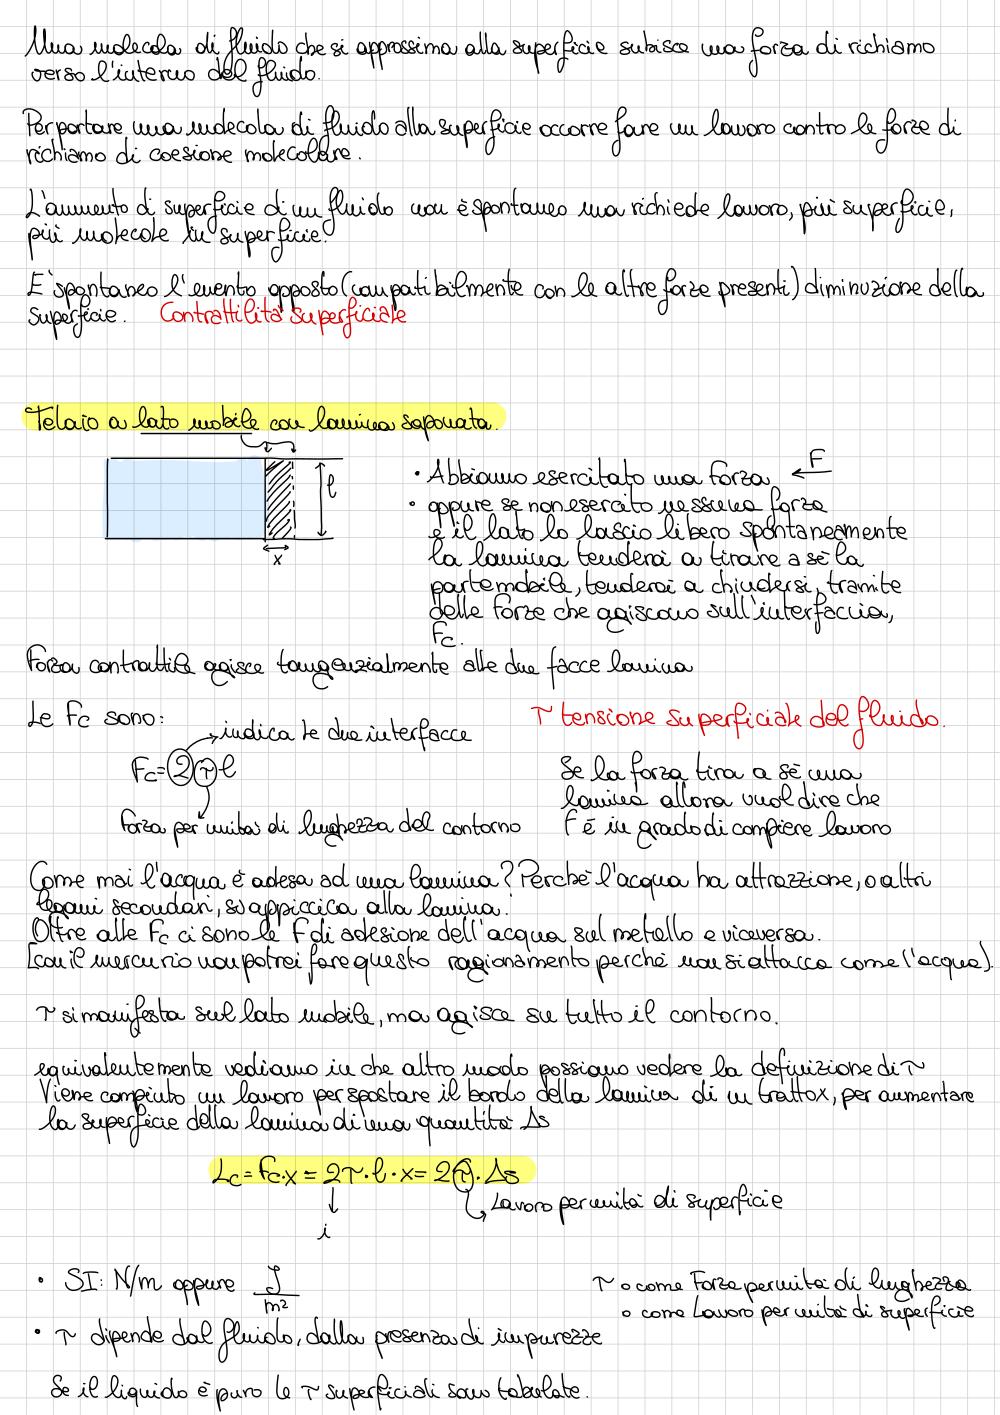 Una molecola di fluido che si approssima alla superficie subisce una forza di richiamo
verso l'interno del fluido.
Per portare una molecola di fluido alla superficie occorre fare un lavoro contro le forze di
richiamo di coesione molecolare.
L'aumento di superficie di un fluido non è spontaneo ma richiede lavoro, più superficie,
più molecole in superficie.
E' spontaneo l'evento opposto (compatibilmente con le altre forze presenti) diminuzione della
superficie. Contrattilità superficiale
Telaio a lato mobile con lamina saponata.
l
x
• Abbiamo esercitato una forza F
• oppure se non esercito nessuna forza
e il lato lo lascio libero spontaneamente
la lamina tenderà a tirare a sè la
parte mobile, tenderà a chiudersi, tramite
delle forze che agiscono sull'interfaccia,
Fc.
Forza contrattile agisce tangenzialmente alle due facce lamina
Le Fc sono:
indica le due interfacce
Fc=2τl
Forza per unità di lunghezza del contorno
τ tensione superficiale del fluido.
Se la forza tira a sè una
lamina allora vuol dire che
F è in grado di compiere lavoro
Come mai l'acqua è adesa ad una lamina? Perchè l'acqua ha attrazzione, o altri
legami secondari, si appiccica alla lamina.
Oltre alle Fc ci sono le F di adesione dell'acqua sul metallo e viceversa.
[con il mercurio non potrei fare questo ragionamento perchè non si attacca come l'acqua).
τ si manifesta sul lato mobile, ma agisce su tutto il contorno.
equivalentemente vediamo in che altro modo possiamo vedere la definizione di τ
Viene compiuto un lavoro per spostare il bordo della lamina di un tratto x, per aumentare
la superficie della lamina di una quantità Δs
Lc = Fc·x = 2τ·l·x = 2τ·Δs
Lavoro per unità di superficie
i
• SI: N/m oppure J/m²
τ o come Forza per unità di lunghezza
o come Lavoro per unità di superficie
• τ dipende dal fluido, dalla presenza di impurezze
Se il liquido è puro le τ superficiali sono tabulate.